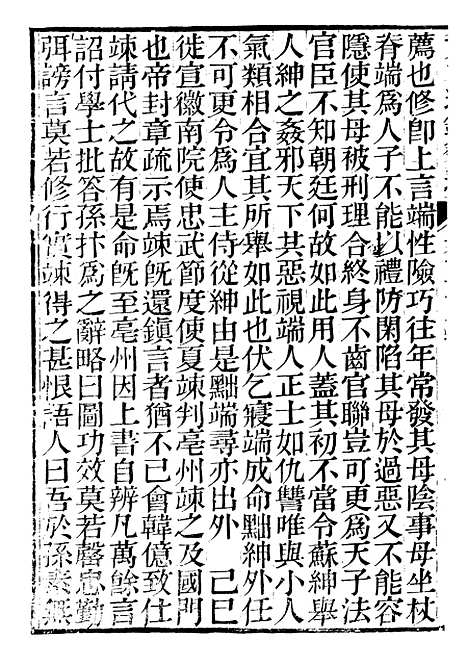 薦也修卽上言端性險巧往年常發其母陰事母坐杖
脊端爲人子不能以禮防閑陷其母於過惡又不能容
隱使其母被刑理合終身不齒官聯豈可更爲天子法
官臣不知朝廷何故如此用人蓋其初不當令蘇紳舉
人紳之姦邪天下共惡視端人正士如仇讐唯與小人
氣類相合宜其所舉如此也伏乞寢端成命黜紳外任
不可更令爲人主侍從紳由是黜端尋亦出外　己巳
徙宣徽南院使忠武節度使夏竦判亳州竦之及國門
也帝封章疏示焉竦旣還鎭言者猶不已會韓億致仕
竦請代之故有是命旣至亳州因上書自辨凡萬餘言
詔付學士批答孫抃爲之辭略曰圖功效莫若罄忠勤
弭謗言莫若修行實竦得之甚恨語人曰吾於孫素無